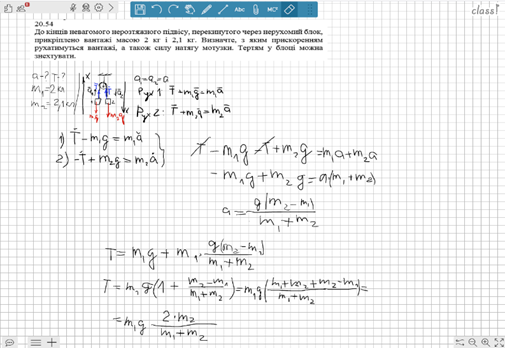 class1
20.54
До кінців невагомого нерозтяжного підвісу, перекинутого через нерухомий блок,
прикріплено вантажі масою 2 кг і 2,1 кг. Визначте, з яким прискоренням
рухатимуться вантажі, а також силу натягу мотузки. Тертям у блоці можна
знехтувати.
a-? T-?
m₁=2 кг
m₂=2,1 кг
x
a₁=a₂=a
Рух 1 T+m₁g=m₁a
Рух 2. T+m₂g=m₂a
1) T-m₁g=m₁a
2) -T+m₂g=m₂a
T-m₁g-T+m₂g=m₁a+m₂a
-m₁g+m₂g=a(m₁+m₂)
a=g(m₂-m₁)/m₁+m₂
T=m₁g+m₁·g(m₂-m₁)/m₁+m₂
T=m₁g(1+m₂-m₁/m₁+m₂)=m₁g(m₁+m₂+m₂-m₁/m₁+m₂)=
=m₁g 2·m₂/m₁+m₂